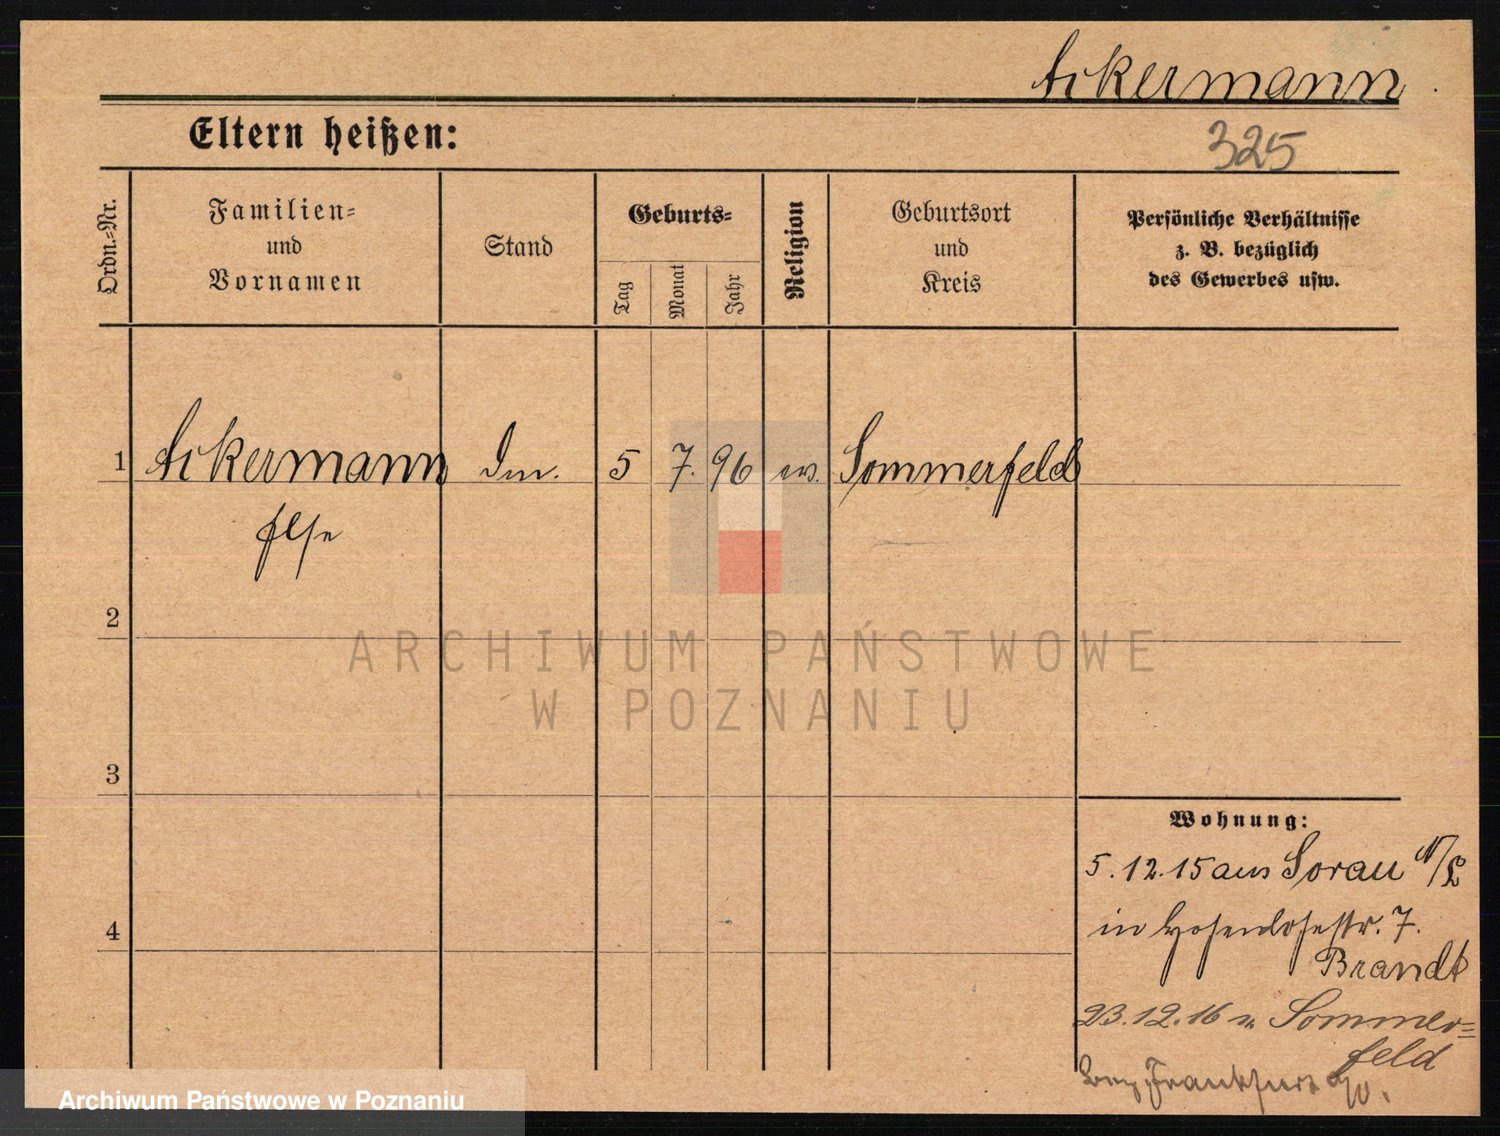 Ackermann
Eltern heißen:
325
Ordn.-Nr.
Familien-
und
Vornamen
Stand
Geburts-
Tag
Monat
Jahr
Religion
Geburtsort
und
Kreis
Persönliche Verhältnisse
z. B. bezüglich
des Gewerbes usw.
1 Ackermann 5 7. 96 ev. Sommerfeld
Else
2
ARCHIWUM PAŃSTWOWE
W POZNANIU
3
4
Wohnung:
5.12.15 aus Sorau N/L
in Hohenlohestr. 7.
Brandt
23.12.16 n. Sommer=
feld
Bez. Frankfurt a/O.
Archiwum Państwowe w Poznaniu